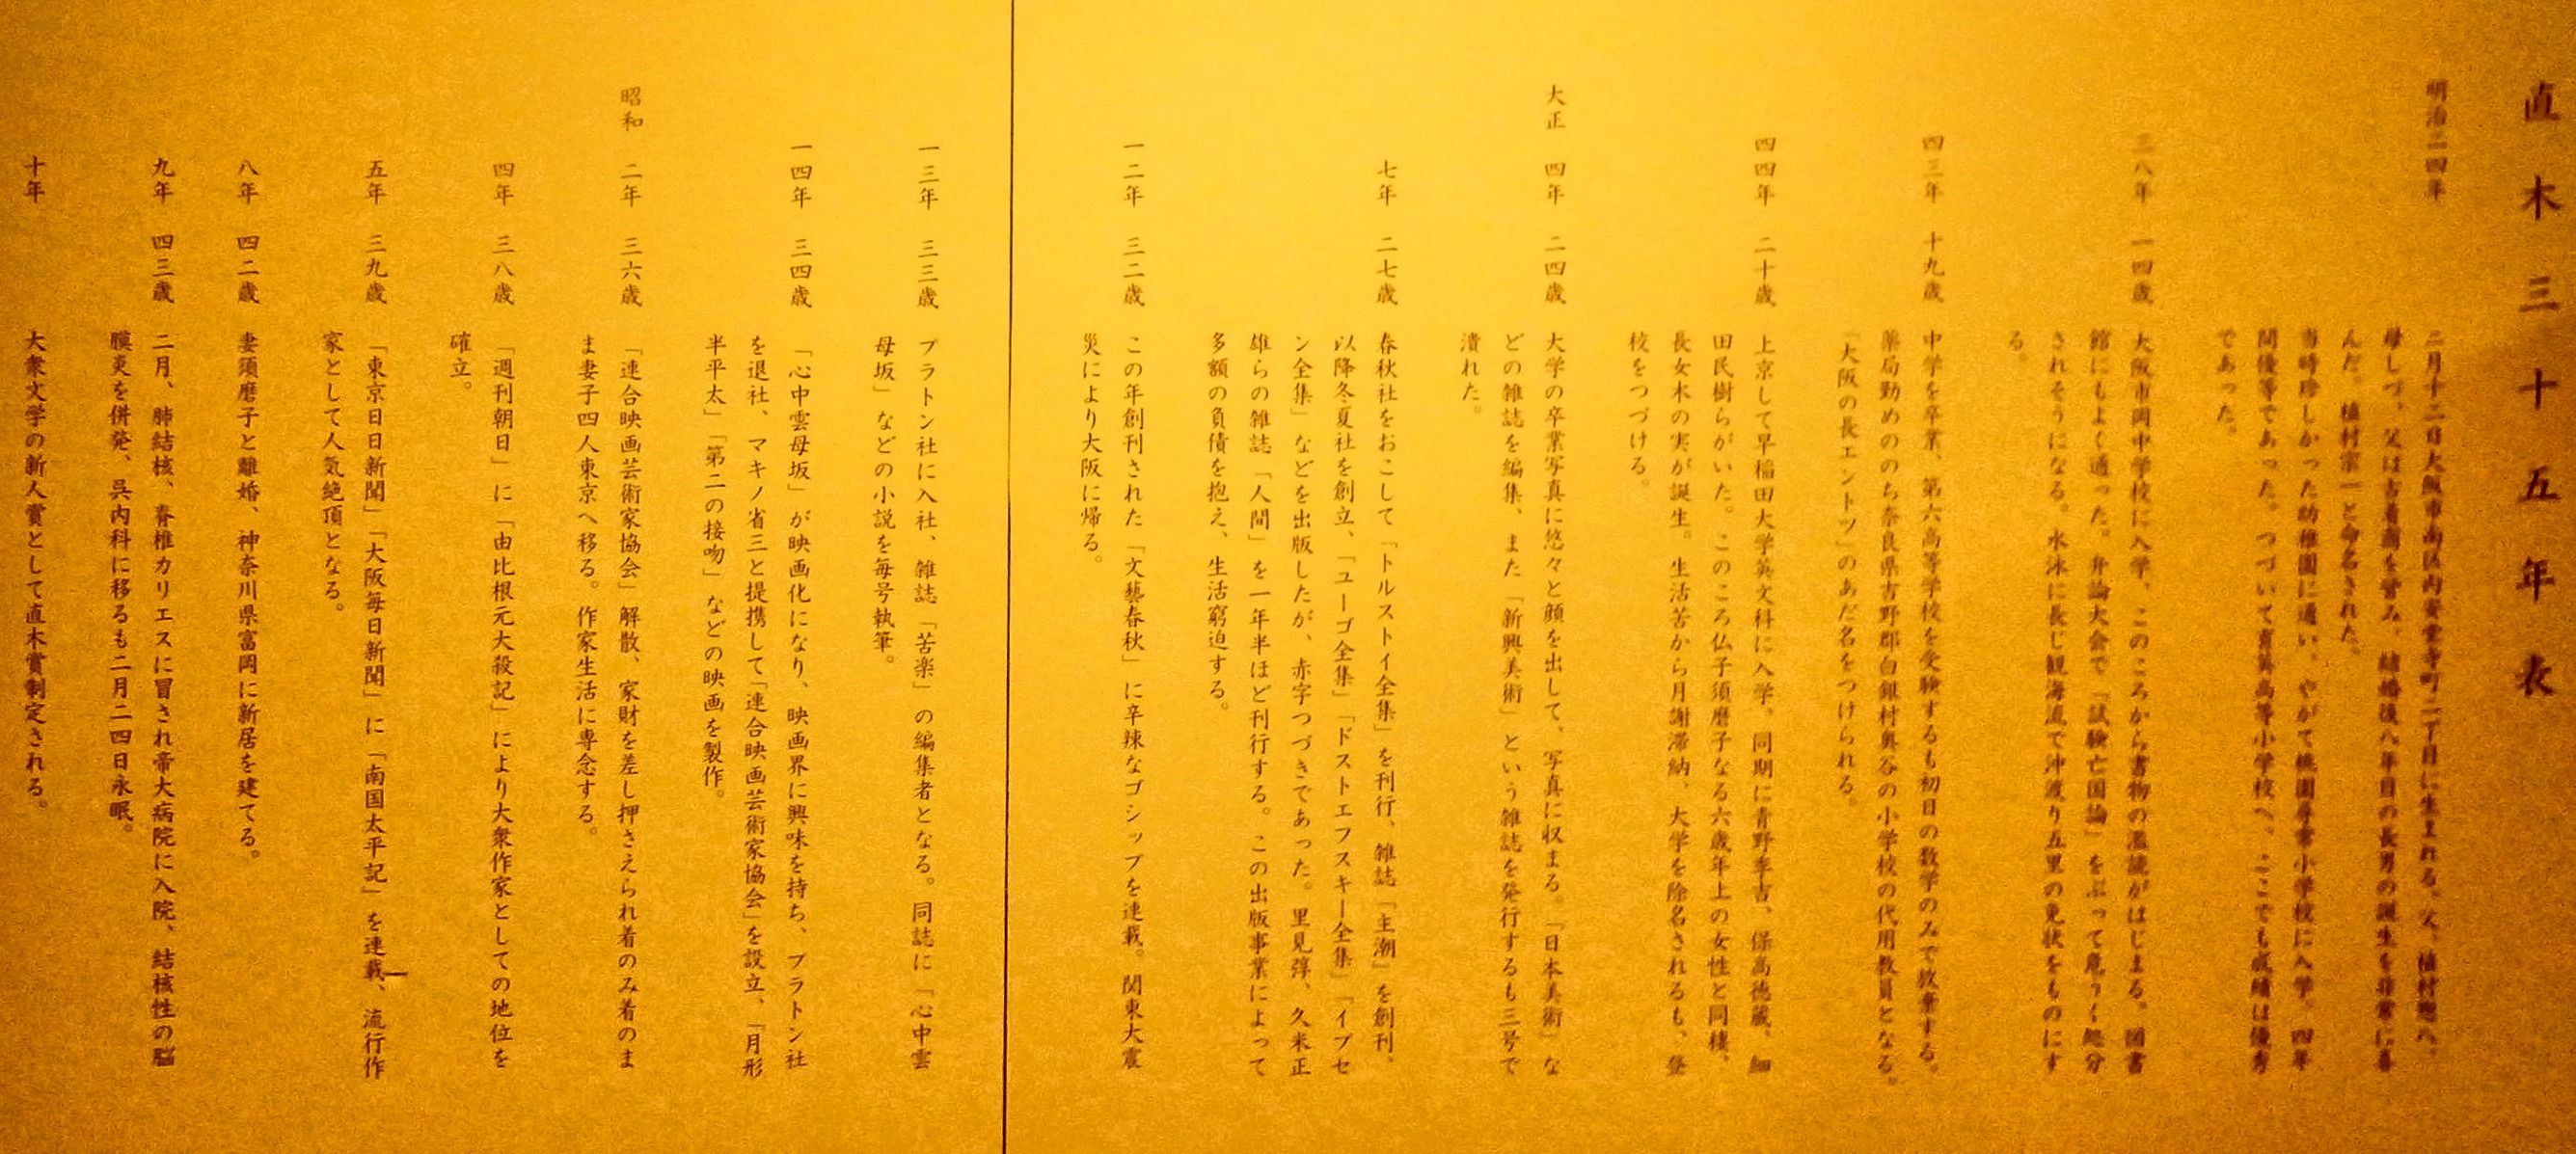 直木三十五年表
明治二四年
二月十二日大阪市南区内安堂寺町二丁目に生まれる。父、植村惣八、
母しづ。父は古着商を営み、結婚後八年目の長男の誕生を非常に喜
んだ。植村宗一と命名された。
当時珍しかった幼稚園に通い、やがて桃園尋常小学校に入学。四年
間優等であった。つづいて育英高等小学校へ、ここでも成績は優秀
であった。
三八年 一四歳
大阪市岡中学校に入学、このころから書物の濫読がはじまる。図書
館にもよく通った。弁論大会で「試験亡国論」をぶって危うく処分
されそうになる。水泳に長じ観海流で沖渡り五里の免状をものにす
る。
四三年 十九歳
中学を卒業、第六高等学校を受験するも初日の数学のみで放棄する。
薬局勤めののち奈良県吉野郡白銀村奥谷の小学校の代用教員となる。
「大阪の長エントツ」のあだ名をつけられる。
四四年 二十歳
上京して早稲田大学英文科に入学、同期に青野季吉、保高徳蔵、細
田民樹らがいた。このころ仏子須磨子なる六歳年上の女性と同棲、
長女木の実が誕生。生活苦から月謝滞納、大学を除名されるも、登
校をつづける。
大正 四年 二四歳
大学の卒業写真に悠々と顔を出して、写真に収まる。「日本美術」な
どの雑誌を編集、また「新興美術」という雑誌を発行するも三号で
潰れた。
七年 二七歳
春秋社をおこして「トルストイ全集」を刊行、雑誌「主潮」を創刊。
以降冬夏社を創立、「ユーゴ全集」「ドストエフスキー全集」「イプセ
ン全集」などを出版したが、赤字つづきであった。里見弴、久米正
雄らの雑誌「人間」を一年半ほど刊行する。この出版事業によって
多額の負債を抱え、生活窮迫する。
一二年 三二歳
この年創刊された「文藝春秋」に辛辣なゴシップを連載。関東大震
災により大阪に帰る。
一三年 三三歳
プラトン社に入社、雑誌「苦楽」の編集者となる。同誌に「心中雲
母坂」などの小説を毎号執筆。
一四年 三四歳
「心中雲母坂」が映画化になり、映画界に興味を持ち、プラトン社
を退社、マキノ省三と提携して「連合映画芸術家協会」を設立、「月形
半平太」「第二の接吻」などの映画を製作。
昭和 二年 三六歳
「連合映画芸術家協会」解散、家財を差し押さえられ着のみ着のま
ま妻子四人東京へ移る。作家生活に専念する。
四年 三八歳
「週刊朝日」に「由比根元大殺記」により大衆作家としての地位を
確立。
五年 三九歳
「東京日日新聞」「大阪毎日新聞」に「南国太平記」を連載、流行作
家として人気絶頂となる。
八年 四二歳
妻須磨子と離婚、神奈川県富岡に新居を建てる。
九年 四三歳
二月、肺結核、脊椎カリエスに冒され帝大病院に入院、結核性の脳
膜炎を併発、呉内科に移るも二月二四日永眠。
十年
大衆文学の新人賞として直木賞制定される。